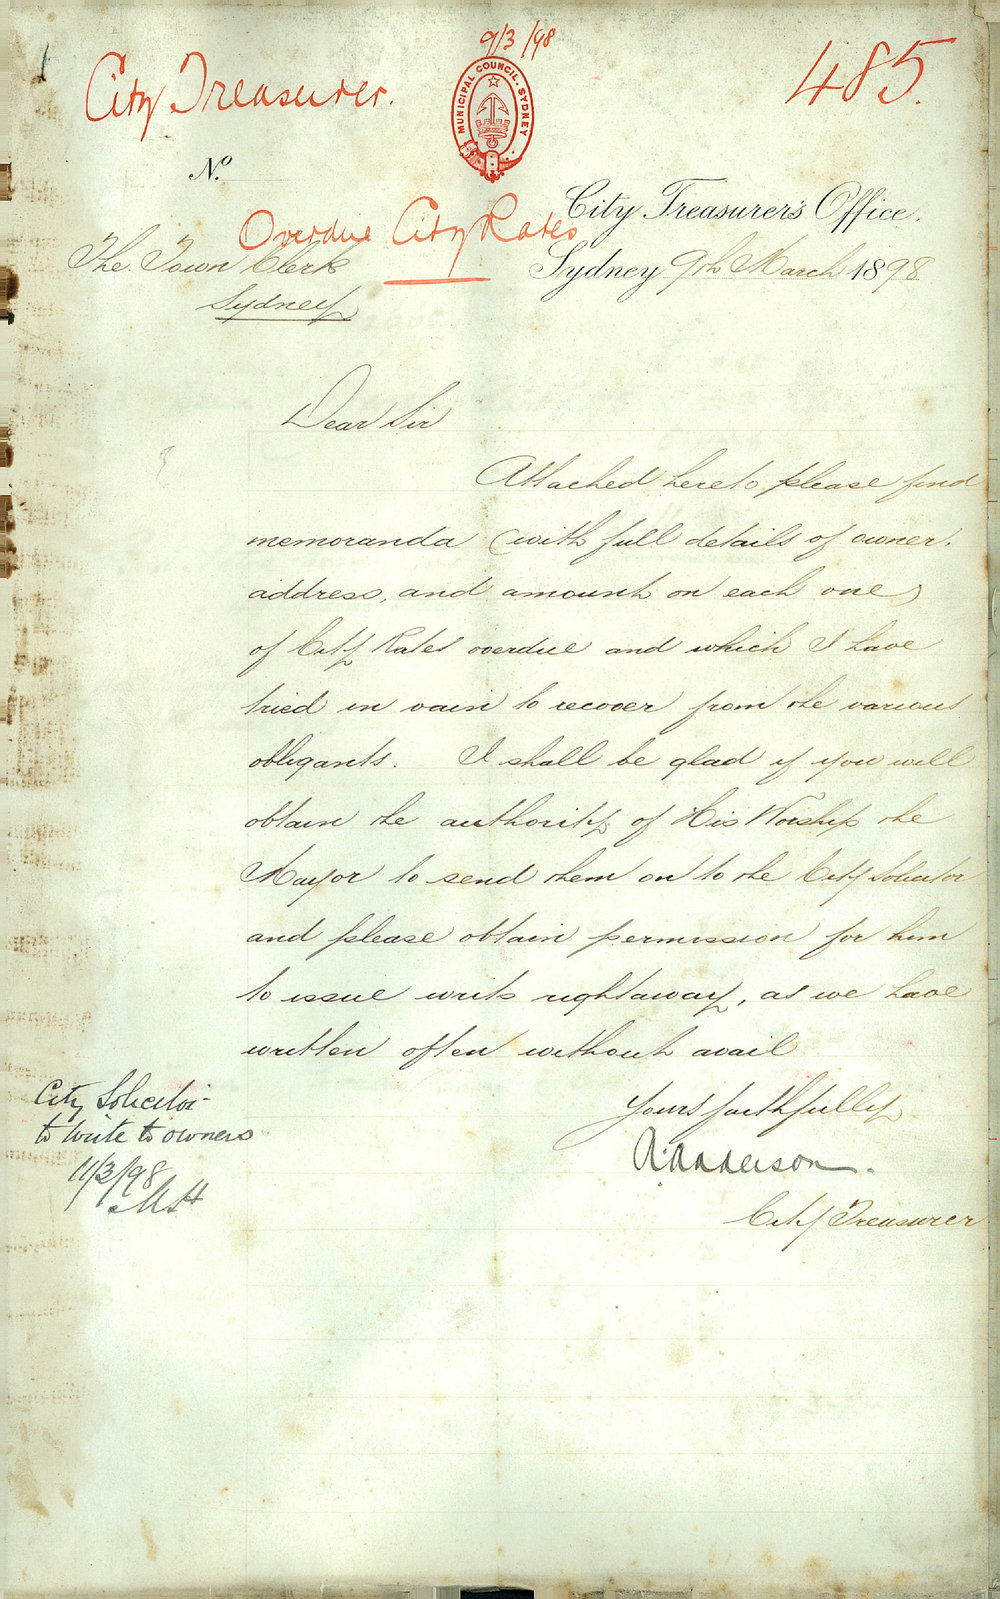 9/3/98
City Treasurer.
485.
MUNICIPAL COUNCIL. SYDNEY
No.
City Treasurer's Office.
Overdue City Rates
The Town Clerk
Sydney 9th March 1898
Sydney
Dear Sir
Attached hereto please find
memoranda (with full details of owner,
address, and amount on each one)
of City Rates overdue and which I have
tried in vain to recover from the various
obligants. I shall be glad if you will
obtain the authority of His Worship the
Mayor to send them on to the City Solicitor
and please obtain permission for him
to issue writs right away, as we have
written often without avail
Yours faithfully
City Solicitor
to write to owners
11/3/98
Anderson.
City Treasurer